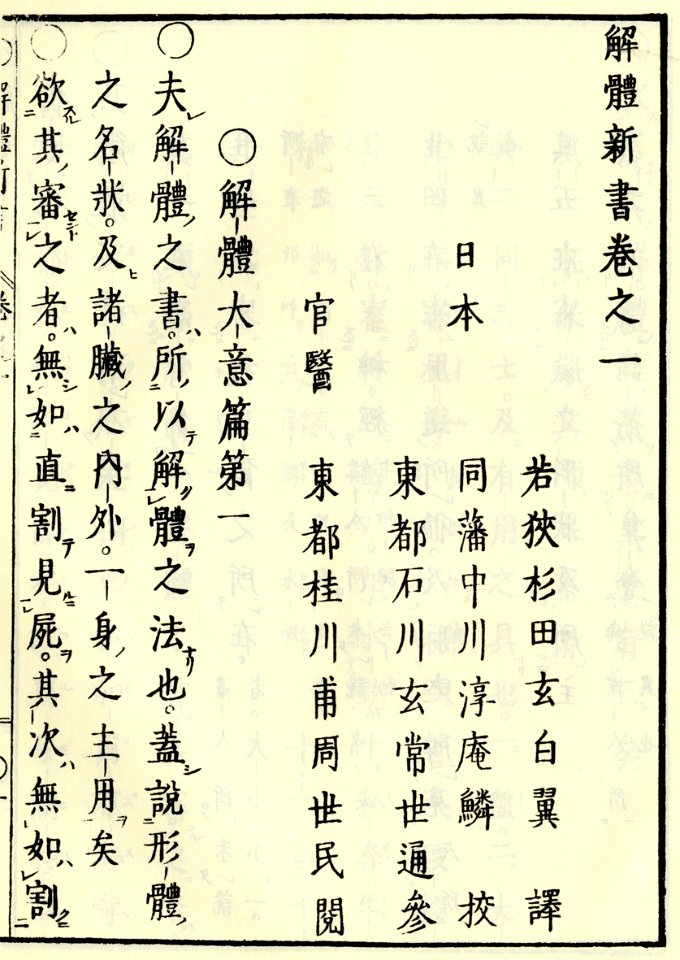 解體新書卷之一
若狹杉田玄白翼　譯
日本　同藩中川淳庵鱗　挍
東都石川玄常世通參
官醫　東都桂川甫周世民閱
〇解體大意篇第一
〇夫解體之書。所以解體之法也。蓋說形體
之名狀。及諸臟之內外。一身之主用矣
〇欲其審之者。無如直割見屍。其次無如割